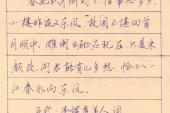 小楼昨夜又东风，故国不堪回首
月明中。雕阑玉砌应犹在，只是朱
颜改。问君能有几多愁，恰似一
江春水向东流。